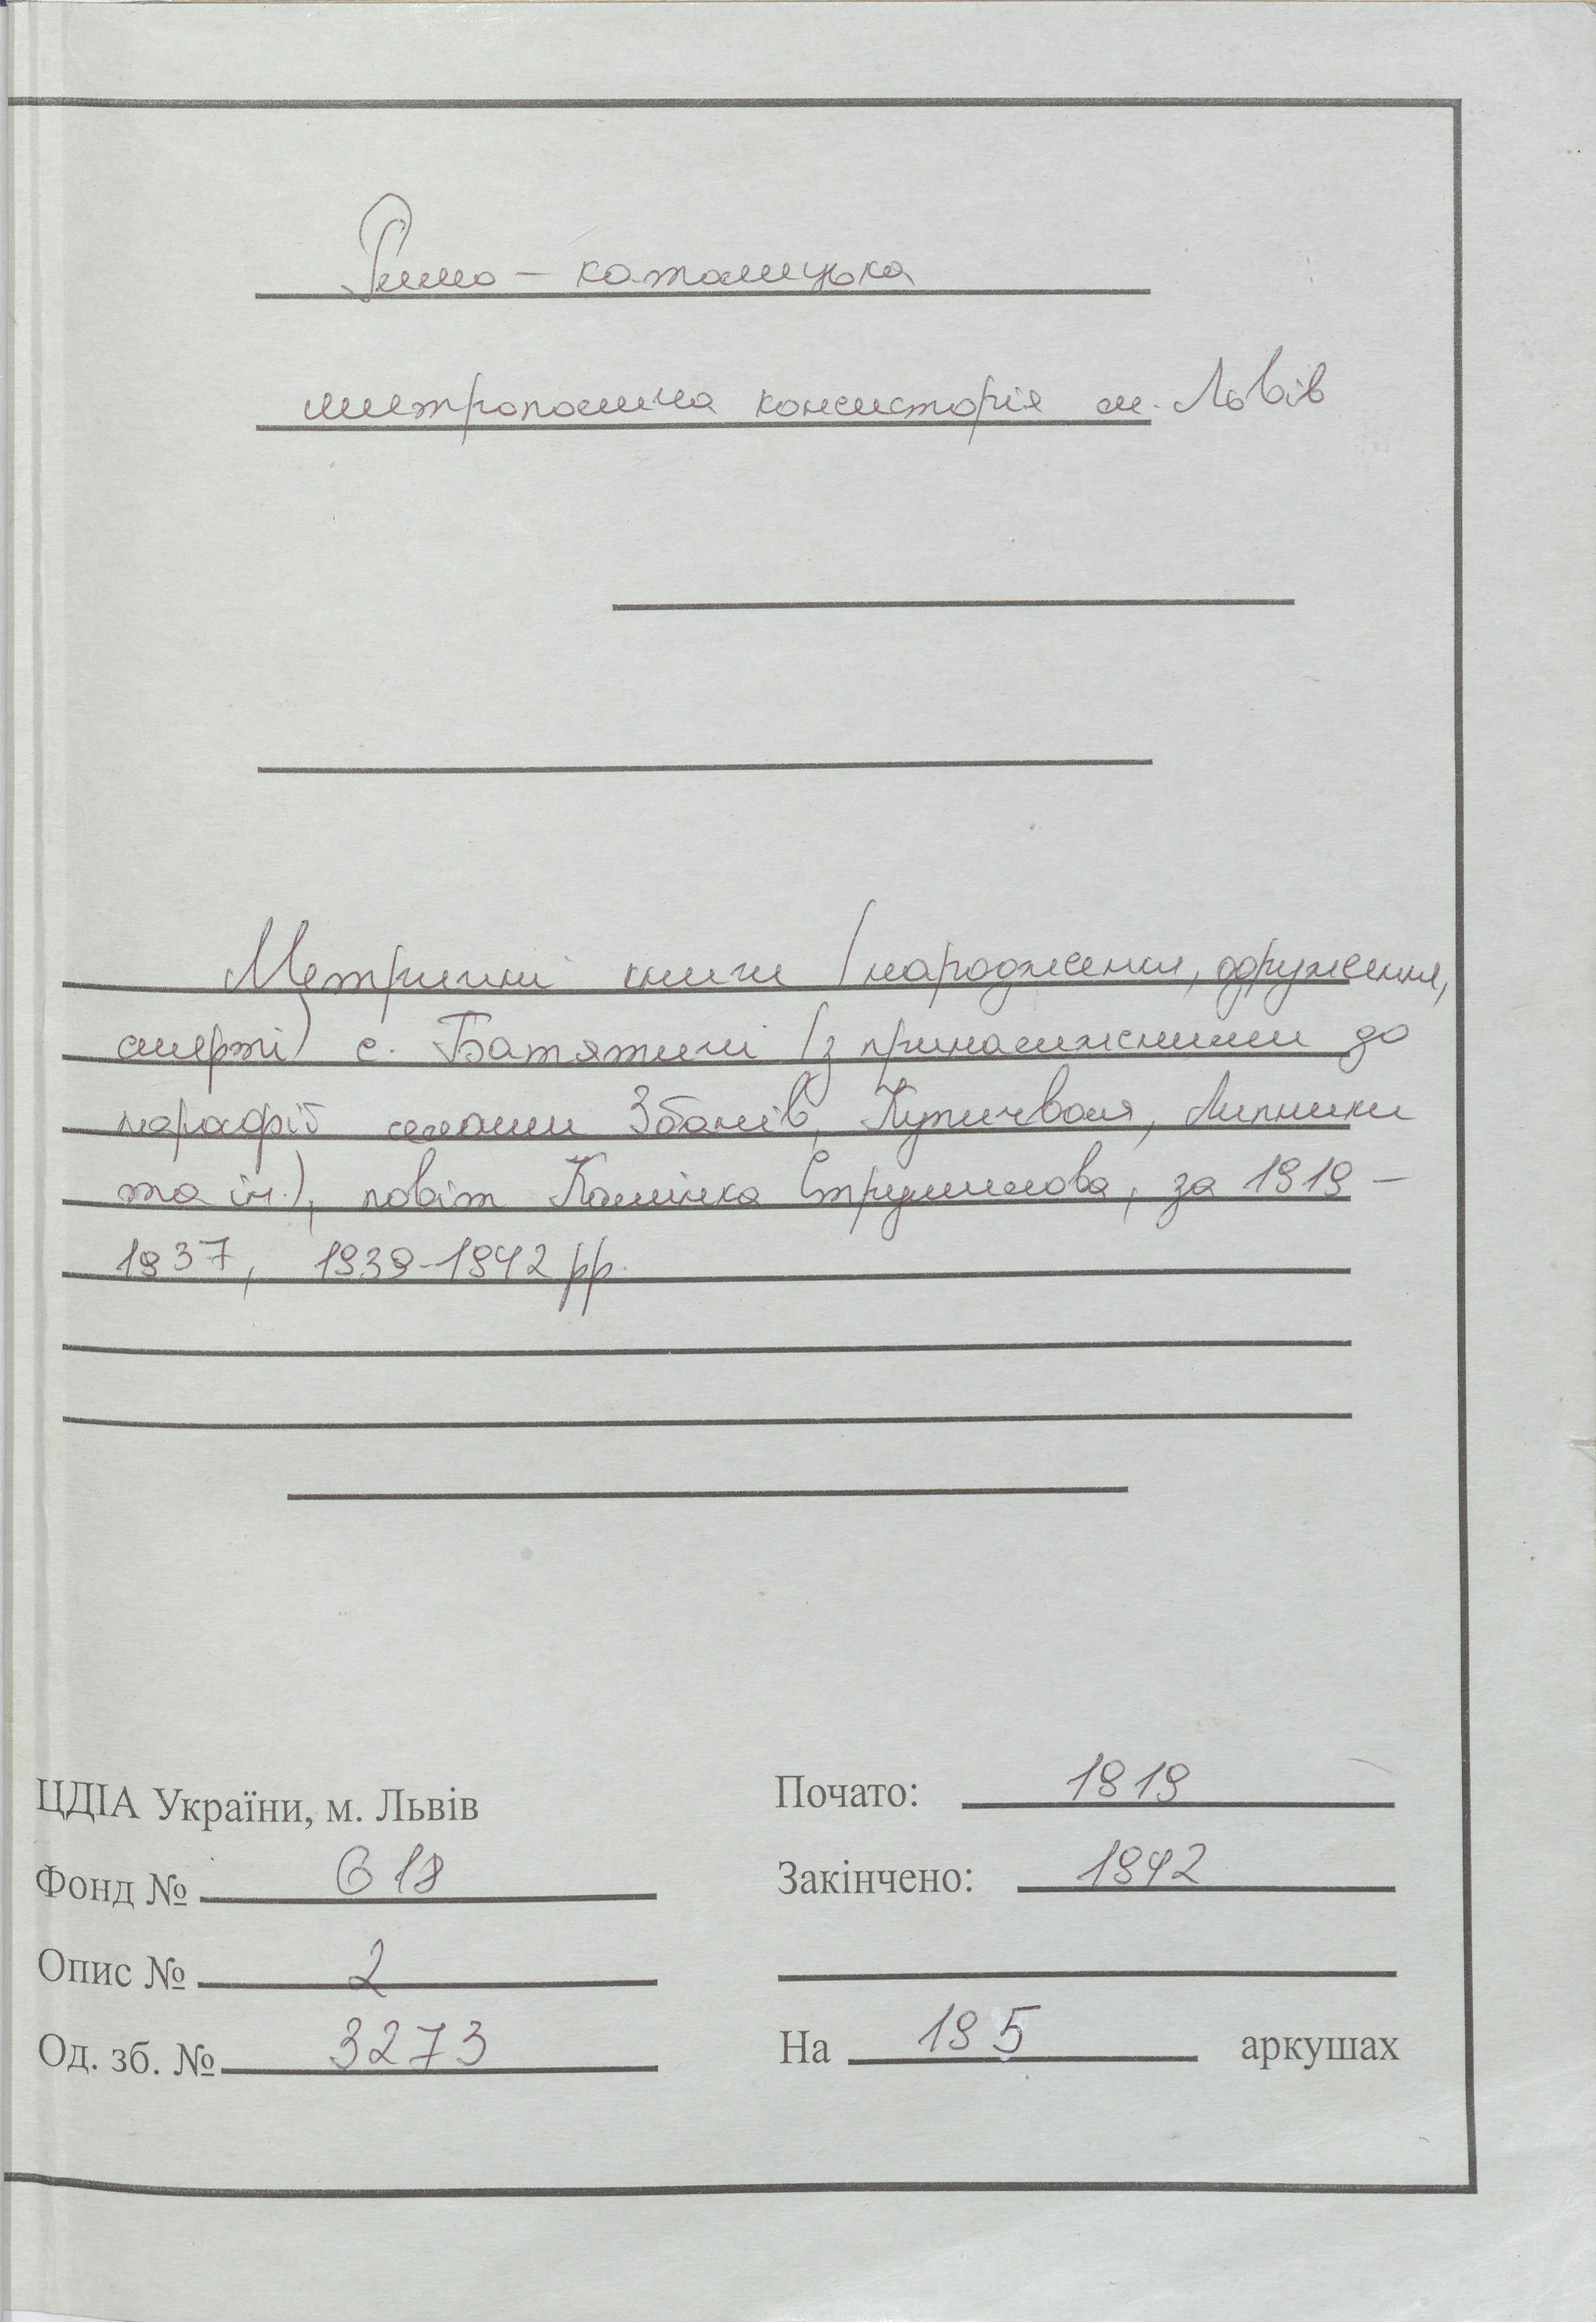 Римо – католицька
митрополича консисторія м. Львів
Метричні книги /народження, одруження,
смерті) с. Батятичі /з приналежними до
парафії селами Збоїв, Купичволя, Липники
та ін.), повіт Камінка Струмилова, за 1919 –
1937, 1939-1942 рр.
ЦДІА України, м. Львів
Почато: 1919
Фонд № 618
Закінчено: 1942
Опис № 2
Од. зб. № 3273
На 195 аркушах